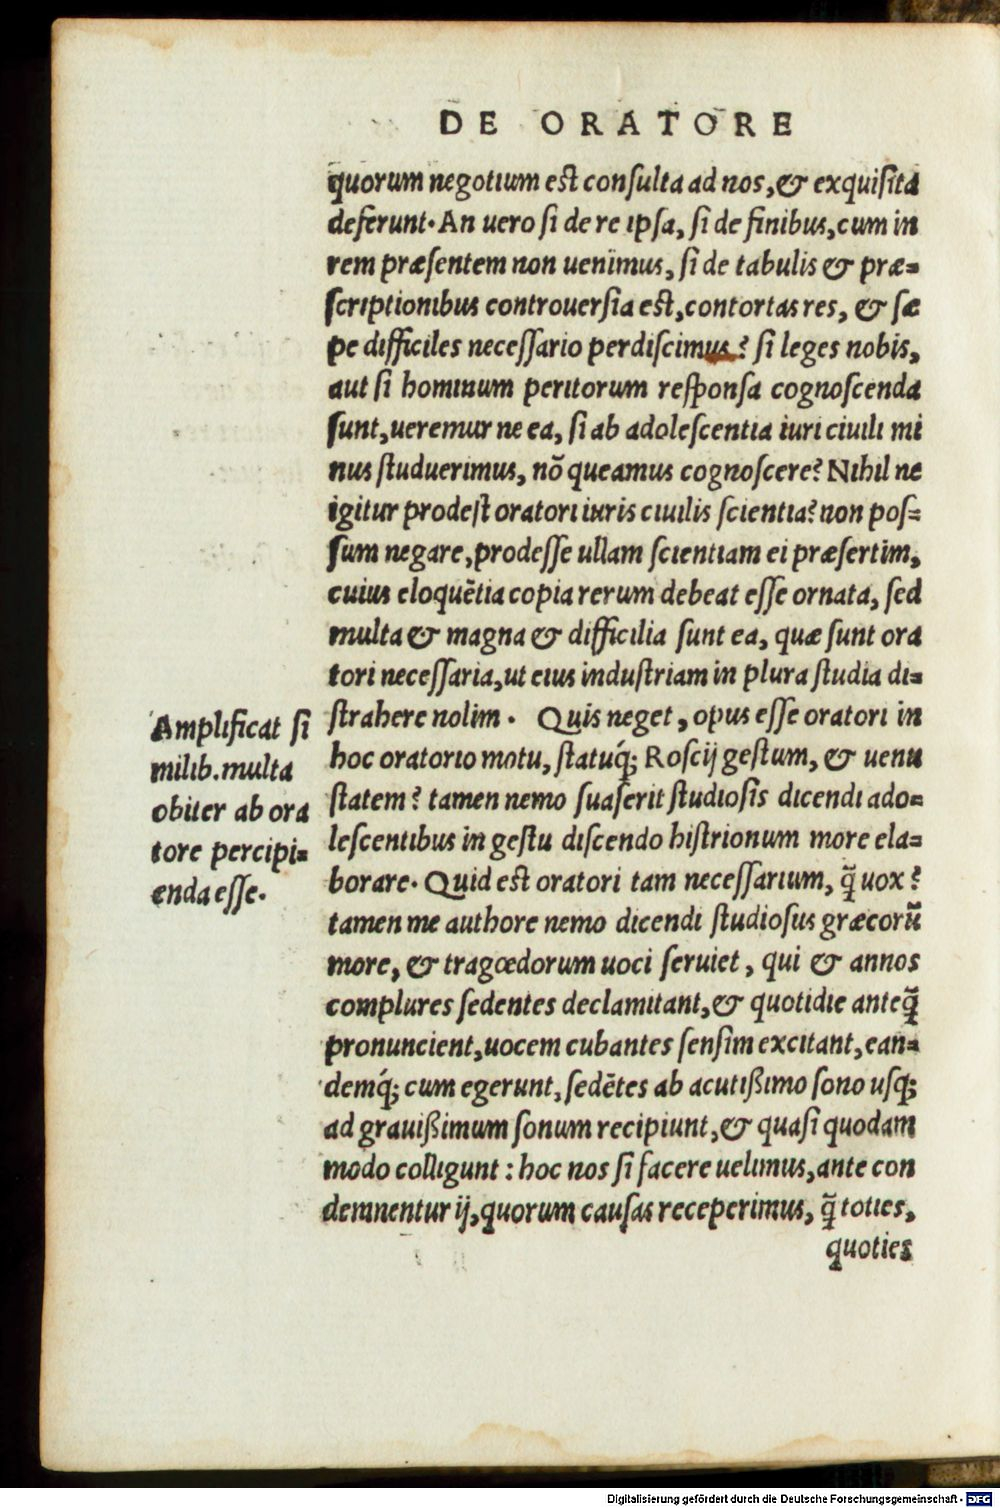 DE ORATORE
quorum negotium est consulta ad nos, & exquisita
deferunt. An uero si de re ipsa, si de finibus, cum in
rem præsentem non uenimus, si de tabulis & præ=
scriptionibus controuersia est, contortas res, & sæ
pe difficiles necessario perdiscimus? si leges nobis,
aut si hominum peritorum responsa cognoscenda
sunt, ueremur ne ea, si ab adolescentia iuri ciuili mi
nus studuerimus, nõ queamus cognoscere? Nihil ne
igitur prodest oratori iuris ciuilis scientia? non pos=
sum negare, prodesse ullam scientiam ei præsertim,
cuius eloquẽtia copia rerum debeat esse ornata, sed
multa & magna & difficilia sunt ea, quæ sunt ora
tori necessaria, ut eius industriam in plura studia di=
strahere nolim. Quis neget, opus esse oratori in
hoc oratorio motu, statuq́; Roscij gestum, & uenu
statem? tamen nemo suaserit studiosis dicendi ado=
lescentibus in gestu discendo histrionum more ela=
borare. Quid est oratori tam necessarium, q̃ uox?
tamen me authore nemo dicendi studiosus græcorũ
more, & tragœdorum uoci seruiet, qui & annos
complures sedentes declamitant, & quotidie anteq̃
pronuncient, uocem cubantes sensim excitant, ean=
demq́; cum egerunt, sedẽtes ab acutißimo sono usq;
ad grauißimum sonum recipiunt, & quasi quodam
modo colligunt: hoc nos si facere uelimus, ante con
demnentur ij, quorum causas receperimus, q̃ toties,
quoties
Amplificat si
milib. multa
obiter ab ora
tore percipi=
enda esse.
Digitalisierung gefördert durch die Deutsche Forschungsgemeinschaft - DFG